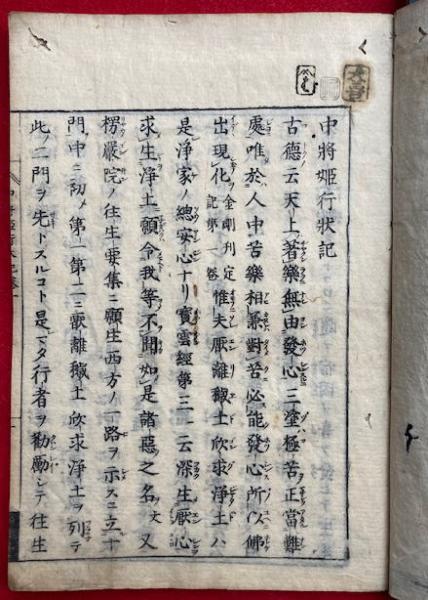 中將姫行狀記
古德云天上著樂無由發心三塗極苦正當難
處唯於人中苦樂相兼對苦必能發心所以佛
出現化金剛刊定記第一卷惟夫厭離穢土欣求淨土ハ
是淨家ノ總安心ナリ寶雲經第三ニ云深生厭心
求生淨土願令我等不聞如是諸惡之名文又
楞嚴院ノ往生要集ニ願生西方ノ一路ヲ示スニ立十
門中ニ初メ第一第二ニ厭離穢土欣求淨土ヲ列テ
此ノ二門ヲ先トスルコト是マタ行者ヲ勸勵シテ往生